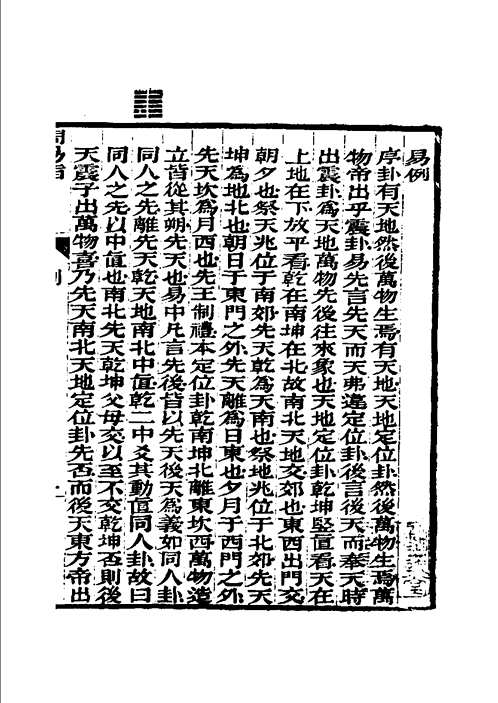 易例
序卦有天地然後萬物生焉有天地天地定位卦然後萬物生焉萬
物帝出乎震卦易先言先天而天弗違定位卦後言後天而奉天時
出震卦為天地萬物先後往來象也天地定位卦乾坤竪值看天在
上地在下放平看乾在南坤在北故南北天地交郊也東西出門交
朝夕也祭天兆位于南郊先天乾為天南也祭地兆位于北郊先天
坤為地北也朝日于東門之外先天離為日東也夕月于西門之外
先天坎為月西也先王制禮本定位卦乾南坤北離東坎西萬物造
立皆從其朔先天也易中凡言先後皆以先天後天為義如同人卦
同人之先離先天乾天地南北中值乾二中爻其動值同人卦故曰
同人之先以中值也南北先天乾坤父母交以至不交乾坤否則後
天震子出萬物喜乃先天南北天地定位卦先否而後天東方帝出
周易指
例